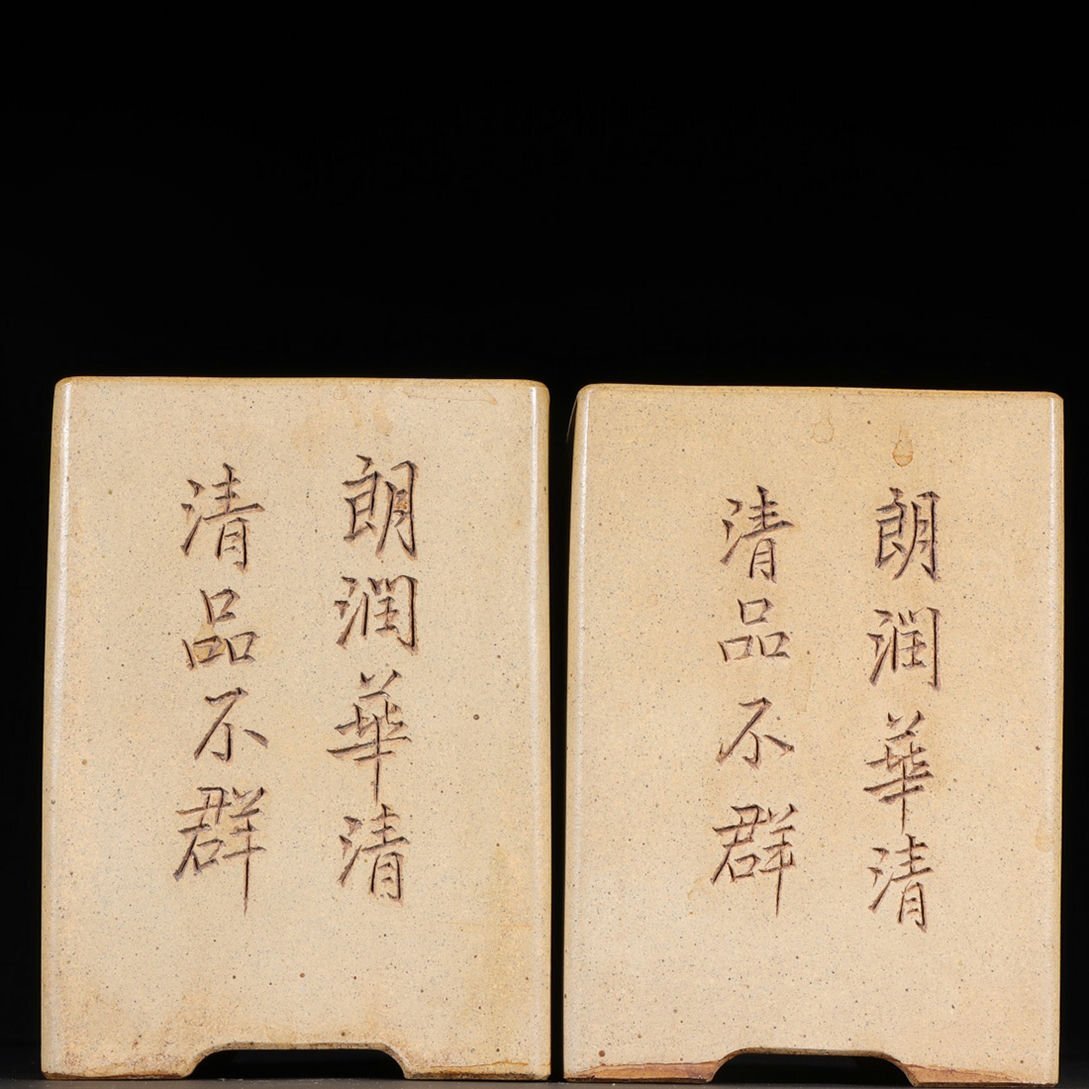 朗潤華清
清品不群
朗潤華清
清品不群